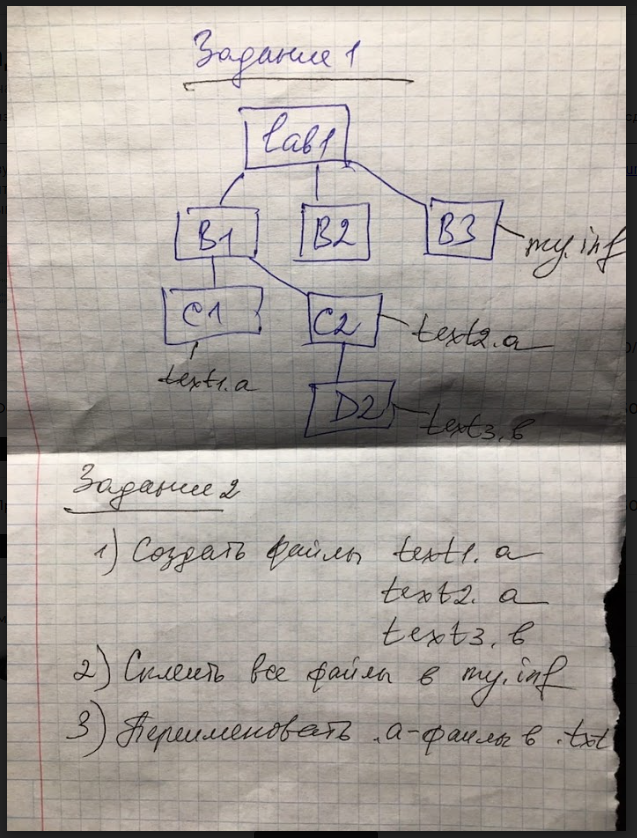 Задание 1
lab1
B1 B2 B3
my.inf
C1 C2
text2.a
text1.a
D2
text3.b
Задание 2
1) Создать файлы text1.a
text2.a
text3.b
2) Склеить все файлы в my.inf
3) Переименовать .a-файлы в .txt